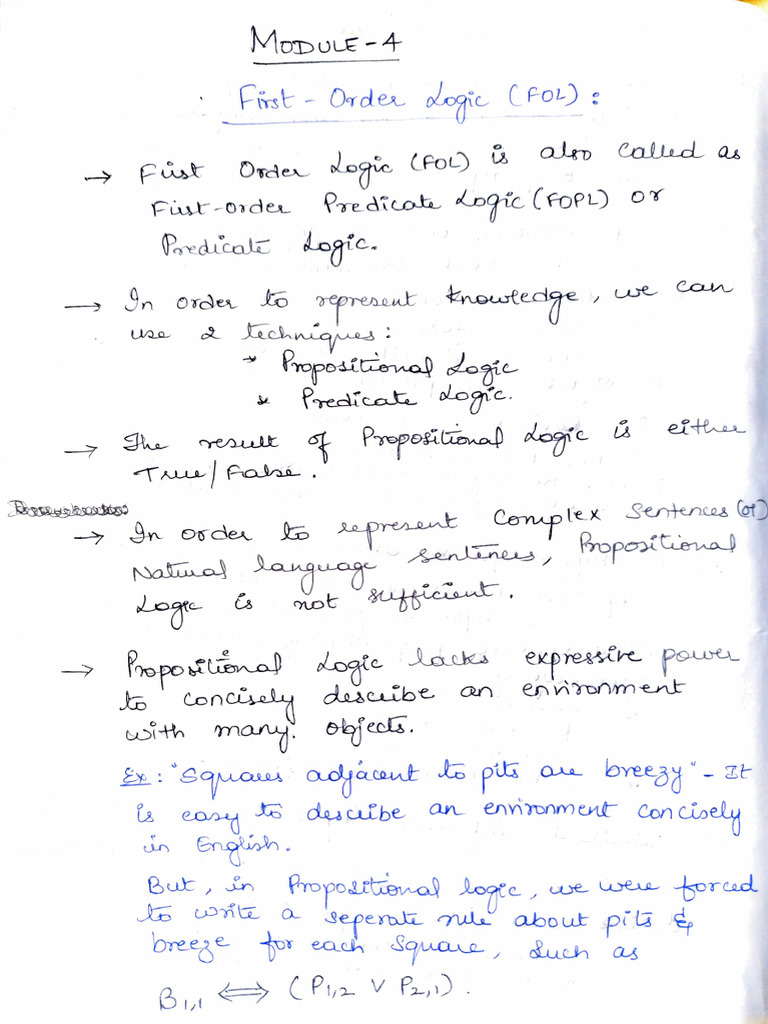 MODULE-4
First-Order Logic (FOL):
→ First Order Logic (FOL) is also called as
First-order Predicate Logic (FOPL) or
Predicate Logic.
→ In order to represent knowledge, we can
use 2 techniques:
* Propositional Logic
* Predicate Logic.
→ The result of Propositional Logic is either
True/False.
→ In order to represent Complex Sentences (or)
Natural language sentences, Propositional
Logic is not sufficient.
→ Propositional Logic lacks expressive power
to concisely describe an environment
with many objects.
Ex: "Squares adjacent to pits are breezy" - It
is easy to describe an environment concisely
in English.
But, in Propositional logic, we were forced
to write a seperate rule about pits &
breeze for each square, such as
B1,1 ⟺ (P1,2 ∨ P2,1).